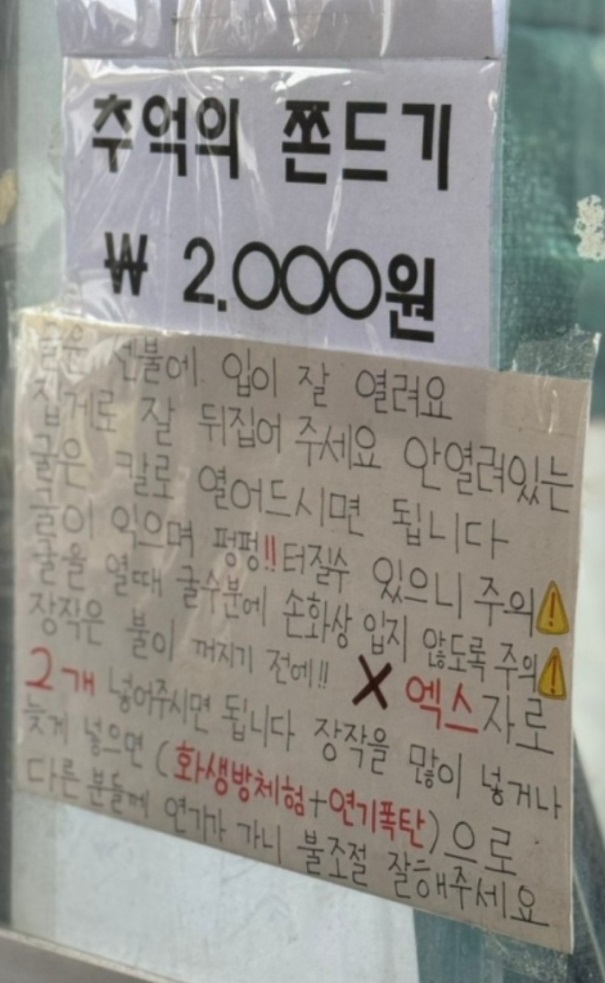 추억의 쫀드기
₩ 2.000원
굴은 센불에 입이 잘 열려요
집게로 잘 뒤집어 주세요 안열려있는
굴은 칼로 열어드시면 됩니다
굴이 익으며 펑펑!! 터질수 있으니 주의⚠
굴을 열때 굴수분에 손화상 입지 않도록 주의⚠
장작은 불이 꺼지기 전에!! X 엑스자로
2개 넣어주시면 됩니다 장작을 많이 넣거나
늦게 넣으면 (화생방체험+연기폭탄)으로
다른 분들께 연기가 가니 불조절 잘해주세요